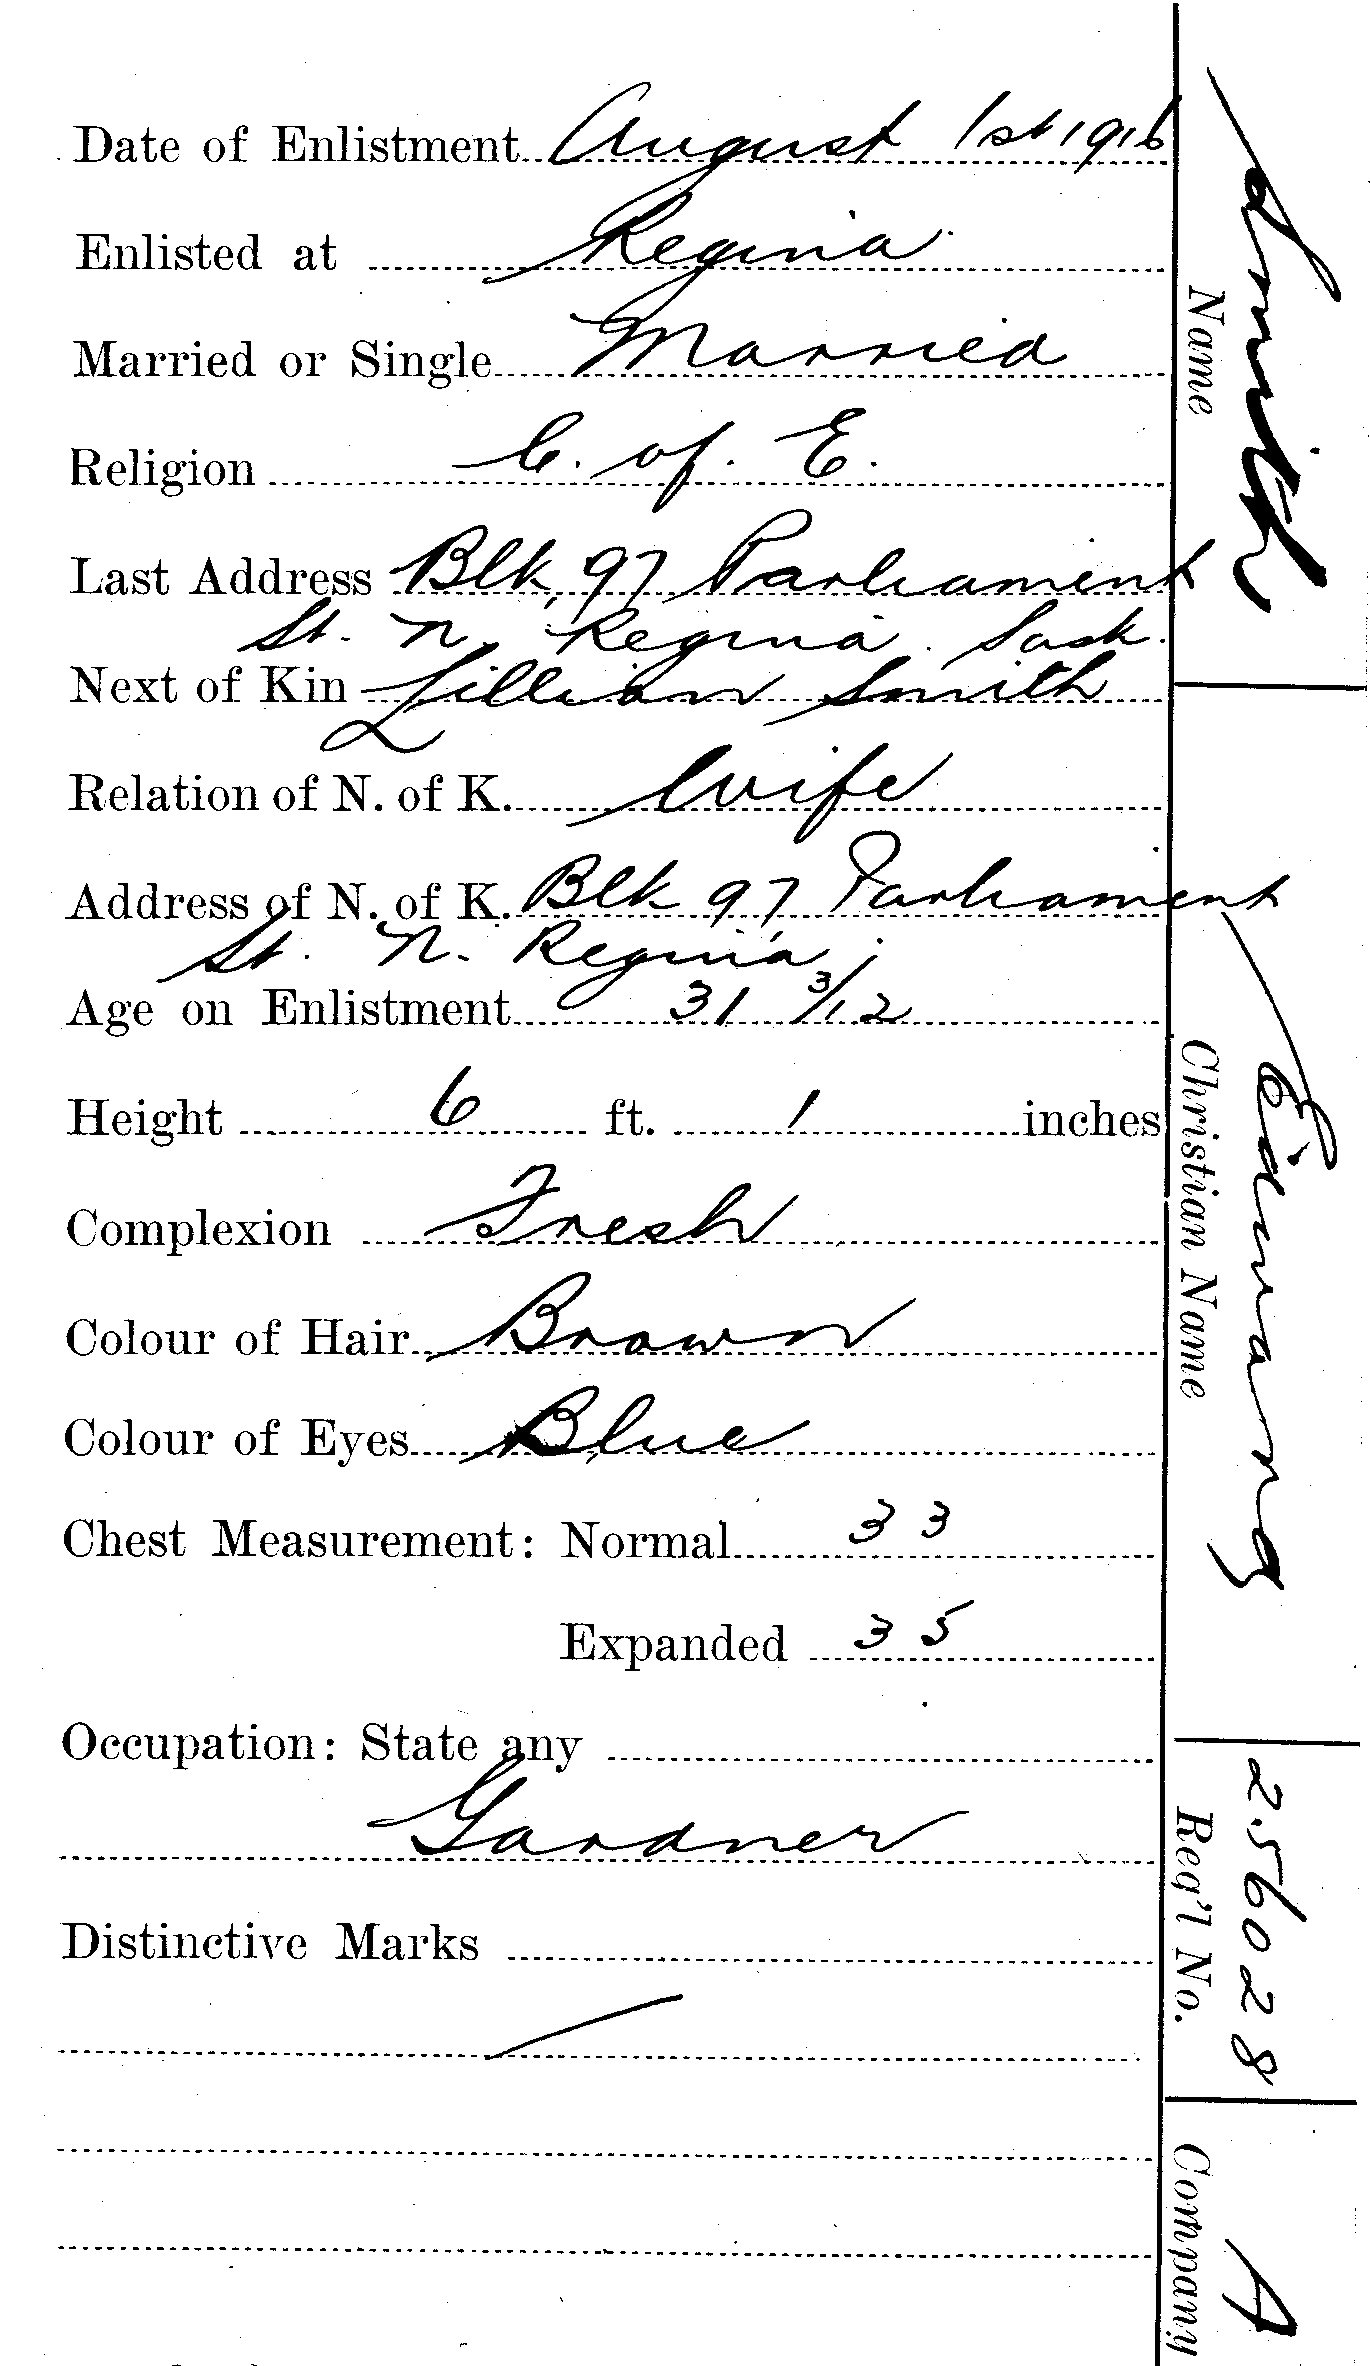 Date of Enlistment August 1st 1916
Enlisted at Regina
Married or Single Married
Religion C. of. E.
Last Address Blk. 97 Parliament
St. N. Regina. Sask.
Next of Kin Lillian Smith
Relation of N. of K. Wife
Address of N. of K. Blk 97, Parliament
St. N. Regina,
Age on Enlistment 31 3/12
Height 6 ft. 1 inches
Complexion Fresh
Colour of Hair Brown
Colour of Eyes Blue
Chest Measurement: Normal 33
Expanded 35
Occupation: State any
Gardner
Distinctive Marks
Smith
Name
Edward
Christian Name
256028
Reg'l No.
A
Company